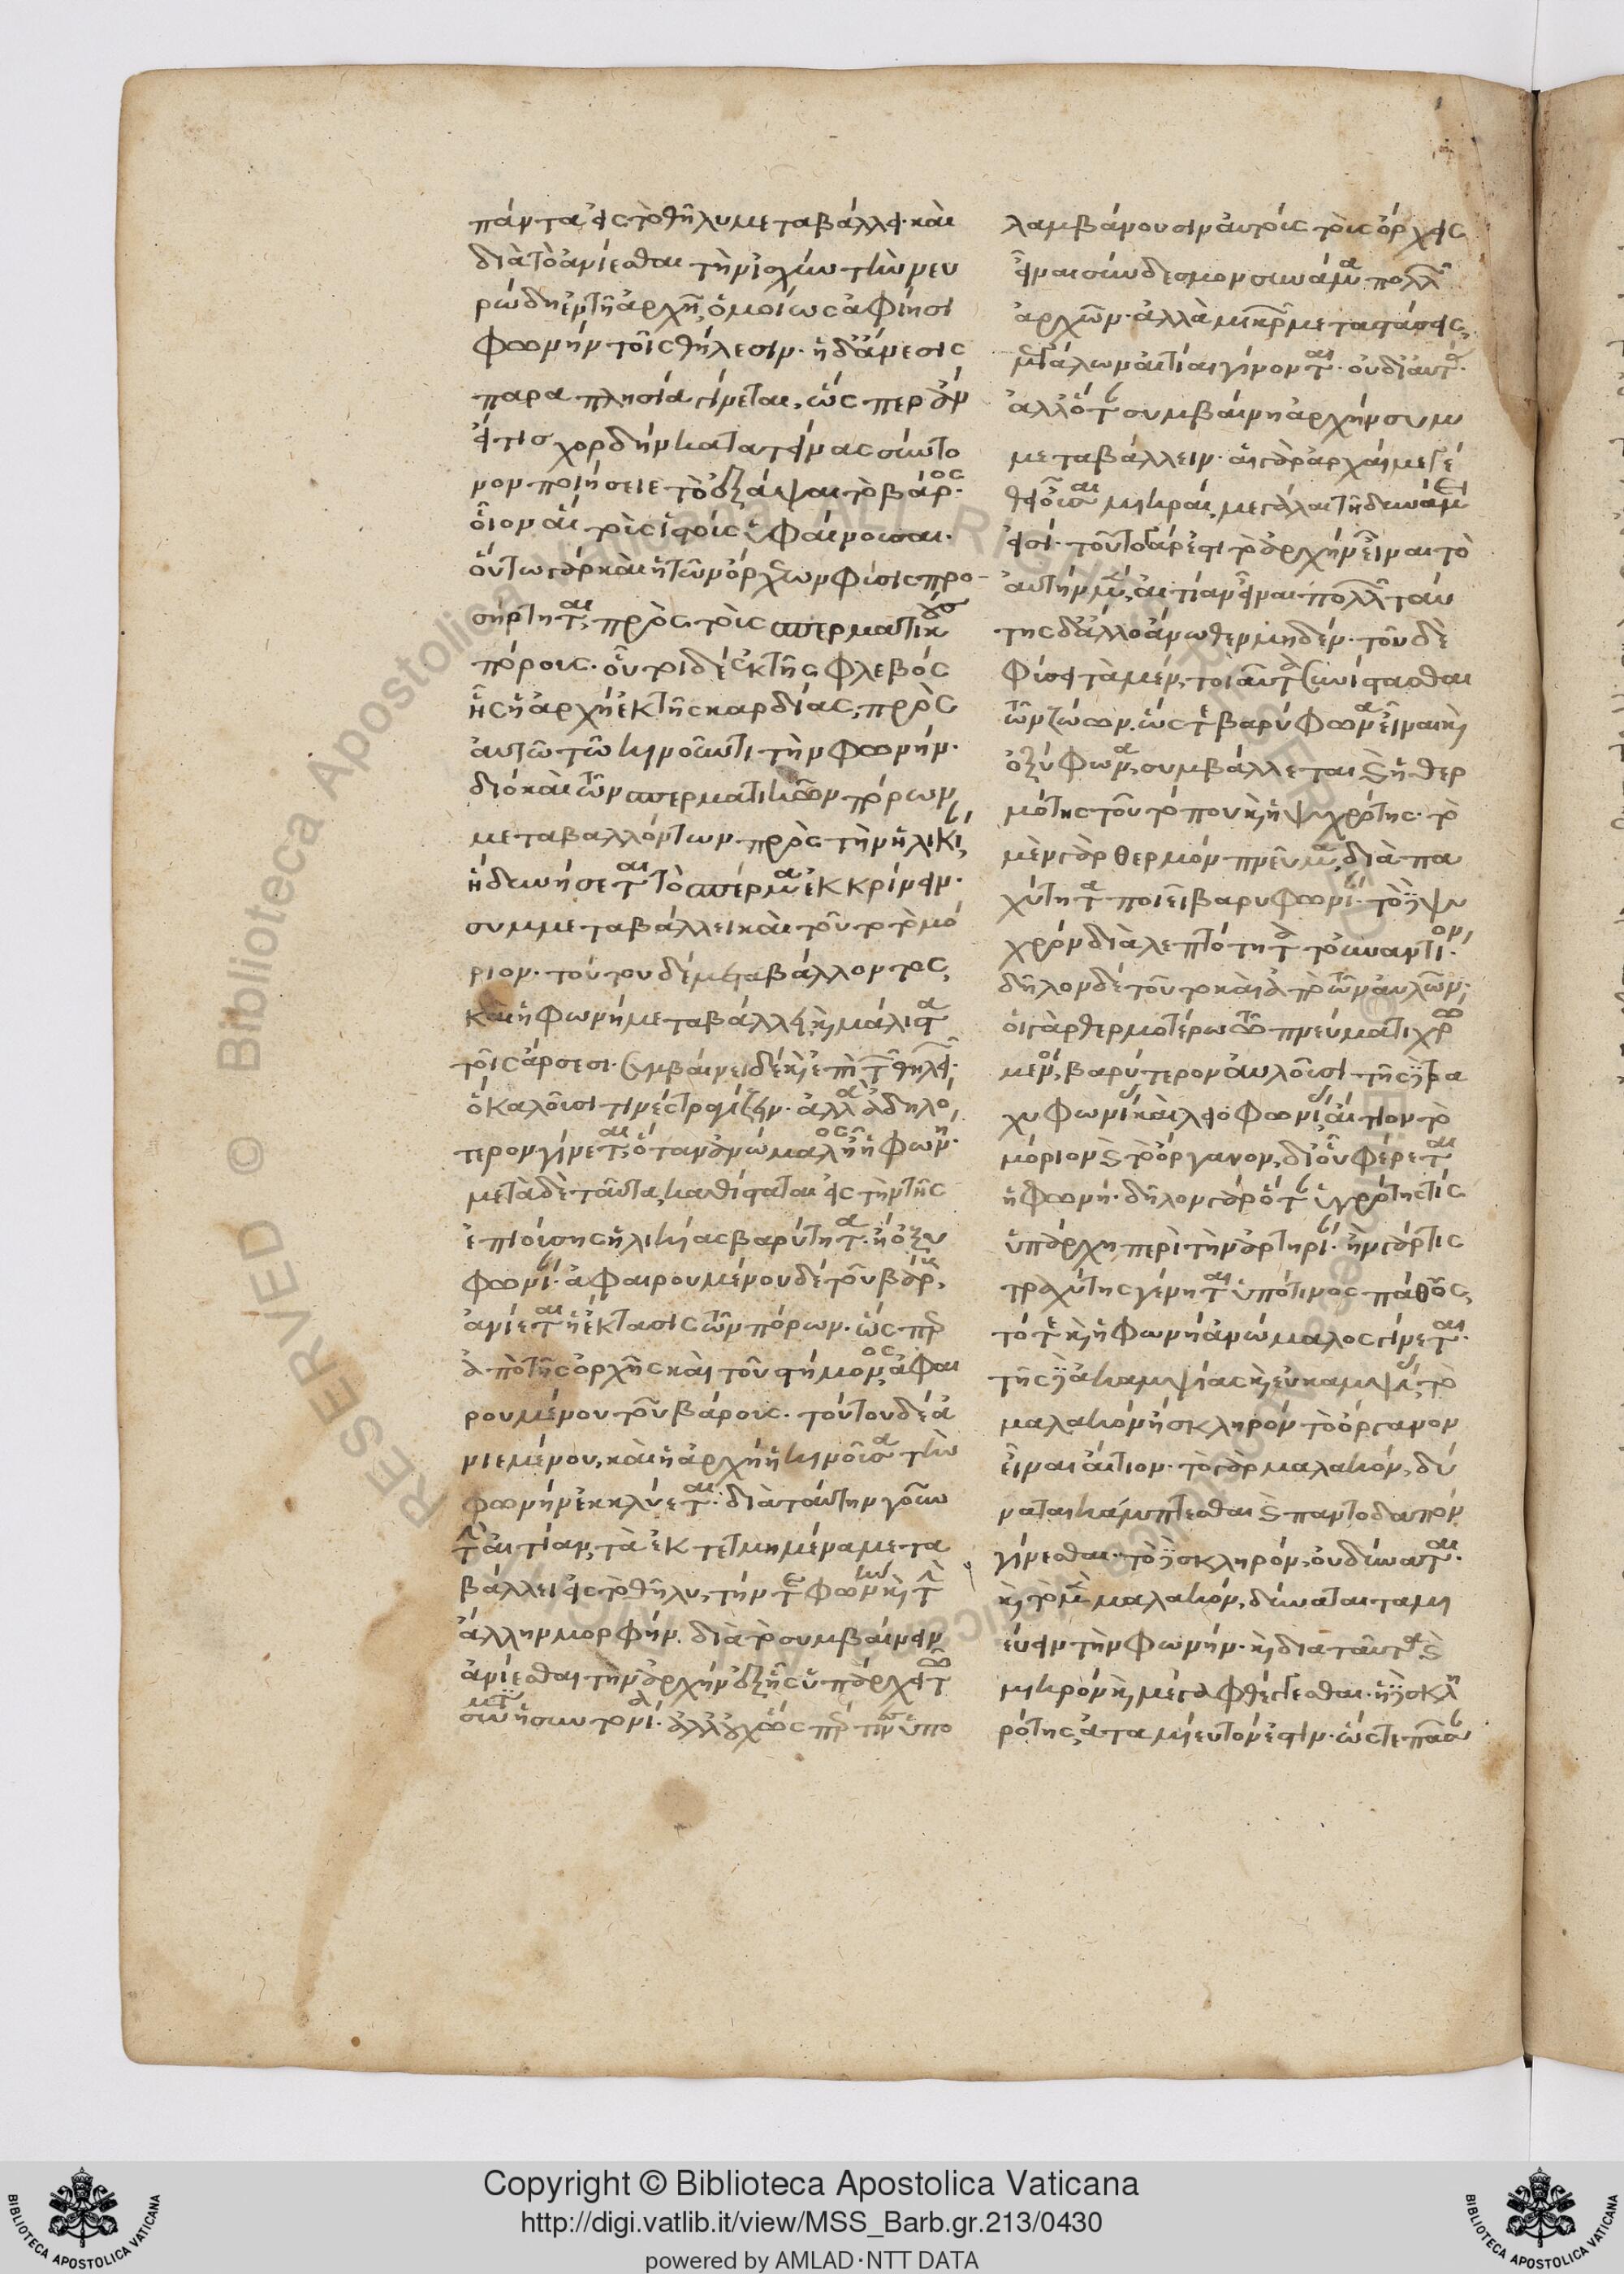 πάντα εἰς τὸ θῆλυ μεταβάλλει· καὶ
διὰ τὸ ἀνίεσθαι τὴν ἰσχὺν τὴν νευ
ρώδη ἐν τῇ ἀρχῇ, ὁμοίως ἀφίησι
φωνὴν τοῖς θήλεσιν· ἡ δ' ἄνεσις
παραπλησία γίνεται, ὥσπερ ἂν
εἴ τις χορδὴν κατατείνας σύντο
νον ποιήσειε τὸ ἐξάψαι τὸ βάρος·
οἷον αἱ τοὺς ἱστοὺς ὑφαίνουσαι·
οὕτω γὰρ καὶ ἡ τῶν ὄρχεων φύσις προ-
σήρτηται, πρὸς τοῖς σπερματικοῖς
πόροις· οὗτοι δὲ ἐκ τῆς φλεβός
ἧς ἡ ἀρχὴ ἐκ τῆς καρδίας, πρὸς
αὐτῷ τῷ κινοῦντι τὴν φωνήν·
διὸ καὶ τῶν σπερματικῶν πόρων
μεταβαλλόντων πρὸς τὴν ἡλικίαν,
ἣ δυνήσεται τὸ σπέρμα ἐκκρίνειν·
συμμεταβάλλει καὶ τοῦτο τὸ μό
ριον· τούτου δὲ μεταβάλλοντος,
καὶ ἡ φωνὴ μεταβάλλει, κ(αὶ) μάλιστα
τοῖς ἄρσεσι· συμβαίνει δὲ κ(αὶ) ἐπὶ τ(ῶν) θηλειῶν·
ὃ καλοῦσί τινες τραγίζειν· ἀλλὰ ἀδηλό
τερον γίνεται, ὅταν ἀνώμαλος ᾖ ἡ φωνή·
μετὰ δὲ ταῦτα, καθίσταται εἰς τὴν τῆς
ἐπιούσης ἡλικίας βαρύτητα· ἢ ὀξυ
φωνίαν· ἀφαιρουμένου δὲ τοῦ βάρους,
ἀνίεται ἡ ἔκτασις τῶν πόρων· ὥσπερ
ἀπὸ τῆς ὀρχῆς καὶ τοῦ στήμονος ἀφαι
ρουμένου τοῦ βάρους· τούτου δὲ ἀ
νιεμένου, καὶ ἡ ἀρχὴ ἡ κινοῦσα τὴν
φωνὴν ἐκλύεται· διὰ ταύτην γοῦν
τ(ὴν) αἰτίαν, τὰ ἐκτετμημένα μετα
βάλλει εἰς τὸ θῆλυ, τήν τε φωνὴν κ(αὶ) τ(ὴν)
ἄλλην μορφήν· διὰ τὸ συμβαίνειν
ἀνίεσθαι τὴν ἀρχὴν ἐξ ἧς ὑπάρχει τ(ῷ)
σώμ(α)τ(ι) ἡ συντονία· ἀλλ' οὐχ ὥσπερ τιν(ὲς) ὑπο
λαμβάνουσιν αὐτοὺς τοὺς ὄρχεις
εἶναι σύνδεσμον συνάμμα πολλῶν
ἀρχῶν· ἀλλὰ μικραὶ μεταστάσεις,
μεγάλων αἰτίαι γίνονται· οὐ δι' αὑτάς·
ἀλλ' ὅταν συμβαίνῃ ἀρχὴν συμ
μεταβάλλειν· αἱ γὰρ ἀρχαὶ μεγέ
θει οὖσαι μικραί, μεγάλαι τῇ δυνάμει
εἰσί· τοῦτο γάρ ἐστι τὸ ἀρχὴν εἶναι τὸ
αὐτὴν μ(ὲν), αἰτίαν εἶναι πολλῶν ταύ
της δ' ἄλλο ἄνωθεν μηδέν· τοῦ δὲ
φύσει τὰ μέν, τοιαῦτα συνίστασθαι
τῶν ζώων, ὥστε βαρύφωνα εἶναι κ(αὶ)
ὀξύφωνα, συμβάλλεται κ(αὶ) ἡ θερ
μότης τοῦ τόπου κ(αὶ) ἡ ψυχρότης· τὸ
μὲν γὰρ θερμὸν πνεῦμα, διὰ πα
χύτητα ποιεῖ βαρυφωνίαν· τὸ δὲ ψυ
χρὸν διὰ λεπτότητα τοὐναντίον·
δῆλον δὲ τοῦτο καὶ ἐπὶ τῶν αὐλῶν·
οἱ γὰρ θερμοτέρῳ τῷ πνεύματι χρώ
μενοι, βαρύτερον αὐλοῦσι· τῆς δὲ τρα
χυφωνίας καὶ λειοφωνίας, αἴτιον τὸ
μόριον κ(αὶ) τὸ ὄργανον, δι' οὗ φέρεται
ἡ φωνή· δῆλον γὰρ ὅταν ὑγρότης τις
ὑπάρχῃ περὶ τὴν ἀρτηρίαν· ἢν γάρ τις
τραχύτης γένηται ὑπό τινος πάθους,
τότε κ(αὶ) ἡ φωνὴ ἀνώμαλος γίνεται·
τῆς δὲ ἀκαμψίας κ(αὶ) εὐκαμψίας, τὸ
μαλακὸν ἢ σκληρὸν τὸ ὄργανον
εἶναι αἴτιον· τὸ γὰρ μαλακόν, δύ
ναται κάμπτεσθαι κ(αὶ) παντοδαπὸν
γίνεσθαι· τὸ δὲ σκληρόν, οὐ δύναται·
κ(αὶ) τὸ μ(ὲν) μαλακόν, δύναται ταμι
εύειν τὴν φωνήν· κ(αὶ) διὰ ταῦτα κ(αὶ)
μικρὸν κ(αὶ) μέγα φθέγγεσθαι· ἡ δὲ σκλη
ρότης, ἀταμίευτόν ἐστιν· ὥστε πᾶσαν
RESERVED © Biblioteca Apostolica Vaticana ALL RIGHTS
Copyright © Biblioteca Apostolica Vaticana
http://digi.vatlib.it/view/MSS_Barb.gr.213/0430
powered by AMLAD·NTT DATA
BIBLIOTECA APOSTOLICA VATICANA
BIBLIOTECA APOSTOLICA VATICANA